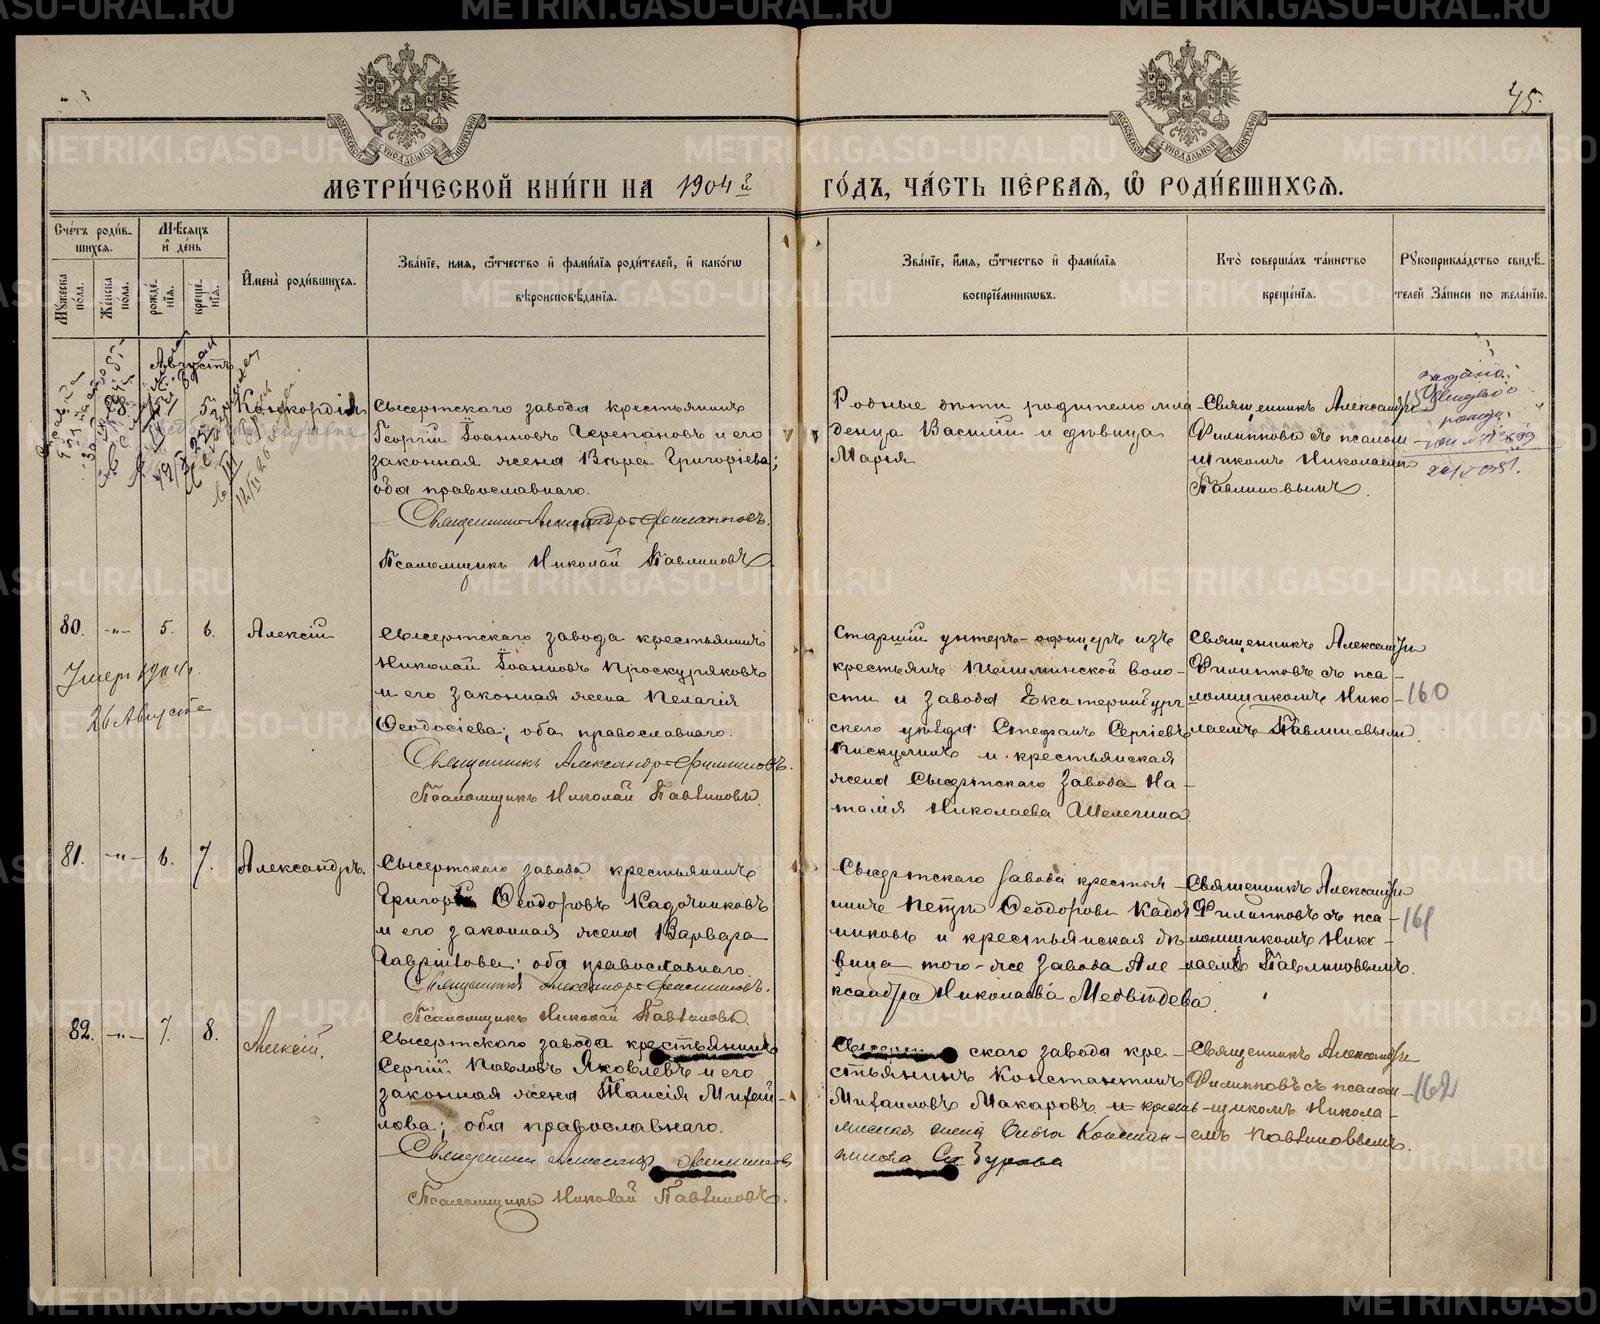 45.
МЕТРИ́ЧЕСКОЙ КНИ́ГИ НА 1904й ГО́ДЪ, ЧА́СТЬ ПЕ́РВАЯ, Ѡ҆ РОДИ́ВШИХСЯ.
Сче́тъ роди́в-
шихся.
Мѣ́сяцъ
и҆ де́нь
Му́жеска
по́ла.
Же́нска
по́ла.
рожде́-
нїя.
креще́-
нїя.
И҆мена̀ роди́вшихся.
Зва́нїе, имя, ѻ҆́тчество и҆ фами́лїѧ роди́телей, и҆ како́гѡ
вѣроисповѣ́данїя.
Зва́нїе, и҆́мя, ѻ҆́тчество и҆ фами́лїя
воспрїе́мниковъ.
Кто̀ соверша́лъ та́инство
креще́нїя.
Рукоприкла́дство свидѣ́-
телей за́писи по жела́нїю.
Августъ
5.
Конкордія
Сысертскаго завода крестьянинъ
Георгій Іоанновъ Черепановъ и его
законная жена Вѣра Григоріева;
оба православнаго.
Священникъ Александръ Филипповъ.
Псаломщикъ Николай Павлиновъ
Родные дѣти родителю мла-
денца Василій и дѣвица
Марія
Священникъ Александръ
Филипповъ съ псалом-
щикомъ Николаемъ
Павлиновымъ.
80. -"- 5. 6. Алексій
Умеръ 1904г.
26 Августа
Сысертскаго завода крестьянинъ
Николай Іоанновъ Проскуряковъ
и его законная жена Пелагія
Ѳеодосіева; оба православнаго.
Священникъ Александръ Филипповъ.
Псаломщикъ Николай Павлиновъ.
Старшій унтеръ-офицеръ изъ
крестьянъ
сти и завода Екатеринбург-
скаго уѣзда Стефанъ Сергіевъ
Пискунинъ и крестьянская
жена Сысертскаго завода На-
талія Николаева Шелегина.
Священникъ Александръ
Филипповъ съ пса-
ломщикомъ Нико-
лаемъ Павлиновымъ.
160
81. -"- 6. 7. Александръ.
Сысертскаго завода крестьянинъ
Григорій Ѳеодоровъ Кадочниковъ
и его законная жена Варвара
Гавріилова; оба православнаго.
Священникъ Александръ Филипповъ.
Псаломщикъ Николай Павлиновъ.
Сысертскаго завода крестья-
нинъ Петръ Ѳеодоровъ Кадоч-
никовъ и крестьянская дѣ-
вица того-же завода Але-
ксандра Николаева Медвѣдева.
Священникъ Александръ
Филипповъ съ пса-
ломщикомъ Нико-
лаемъ Павлиновымъ.
161
82. -"- 7. 8. Алексій.
Сысертскаго завода крестьянинъ
Сергій Павловъ Яковлевъ и его
законная жена Таисія Михай-
лова; оба православнаго.
Священникъ Александръ Филипповъ
Псаломщикъ Николай Павлиновъ.
скаго завода кре-
стьянинъ Константинъ
Михаиловъ Макаровъ и кресть-
янская жена Ольга Констан-
тинова
Священникъ Александръ
Филипповъ съ псалом-
щикомъ Никола-
емъ Павлиновымъ.
162